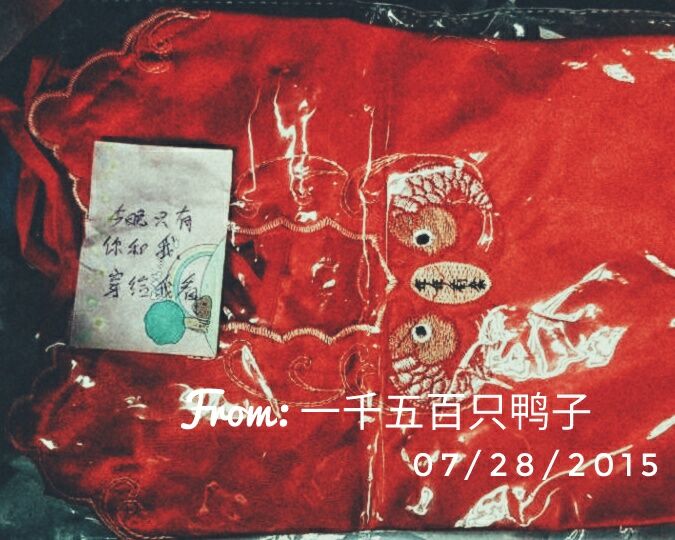 今晚只有
你和我，
穿给我看
年年有余
From: 一千五百只鸭子
07/28/2015